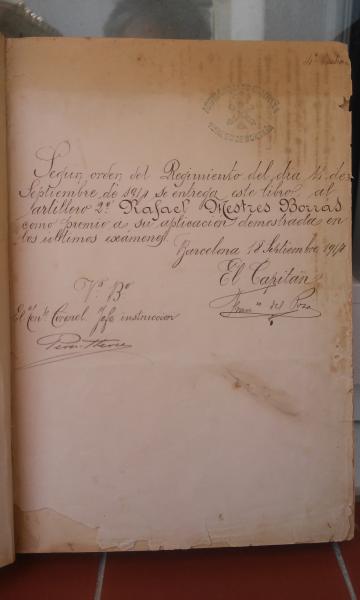 Segun orden del Regimiento del dia 12 de
Septiembre de 1914 se entrega este libro al
artillero 2º Rafael Mestres Borrás
como premio a su aplicacion demostrada en
los ultimos examenes.
Barcelona 18 Septiembre 1914
El Capitán
Vº Bº
El Tente Coronel Jefe instruccion
del